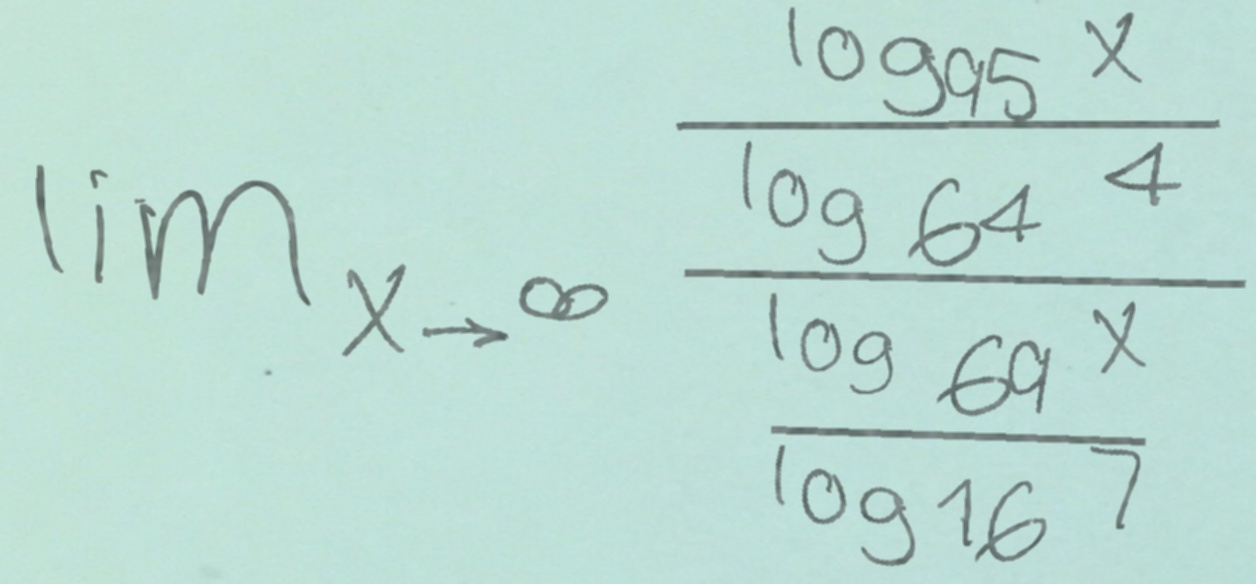 lim x→∞
log 95 x
log 64 4
log 69 x
log 16 7